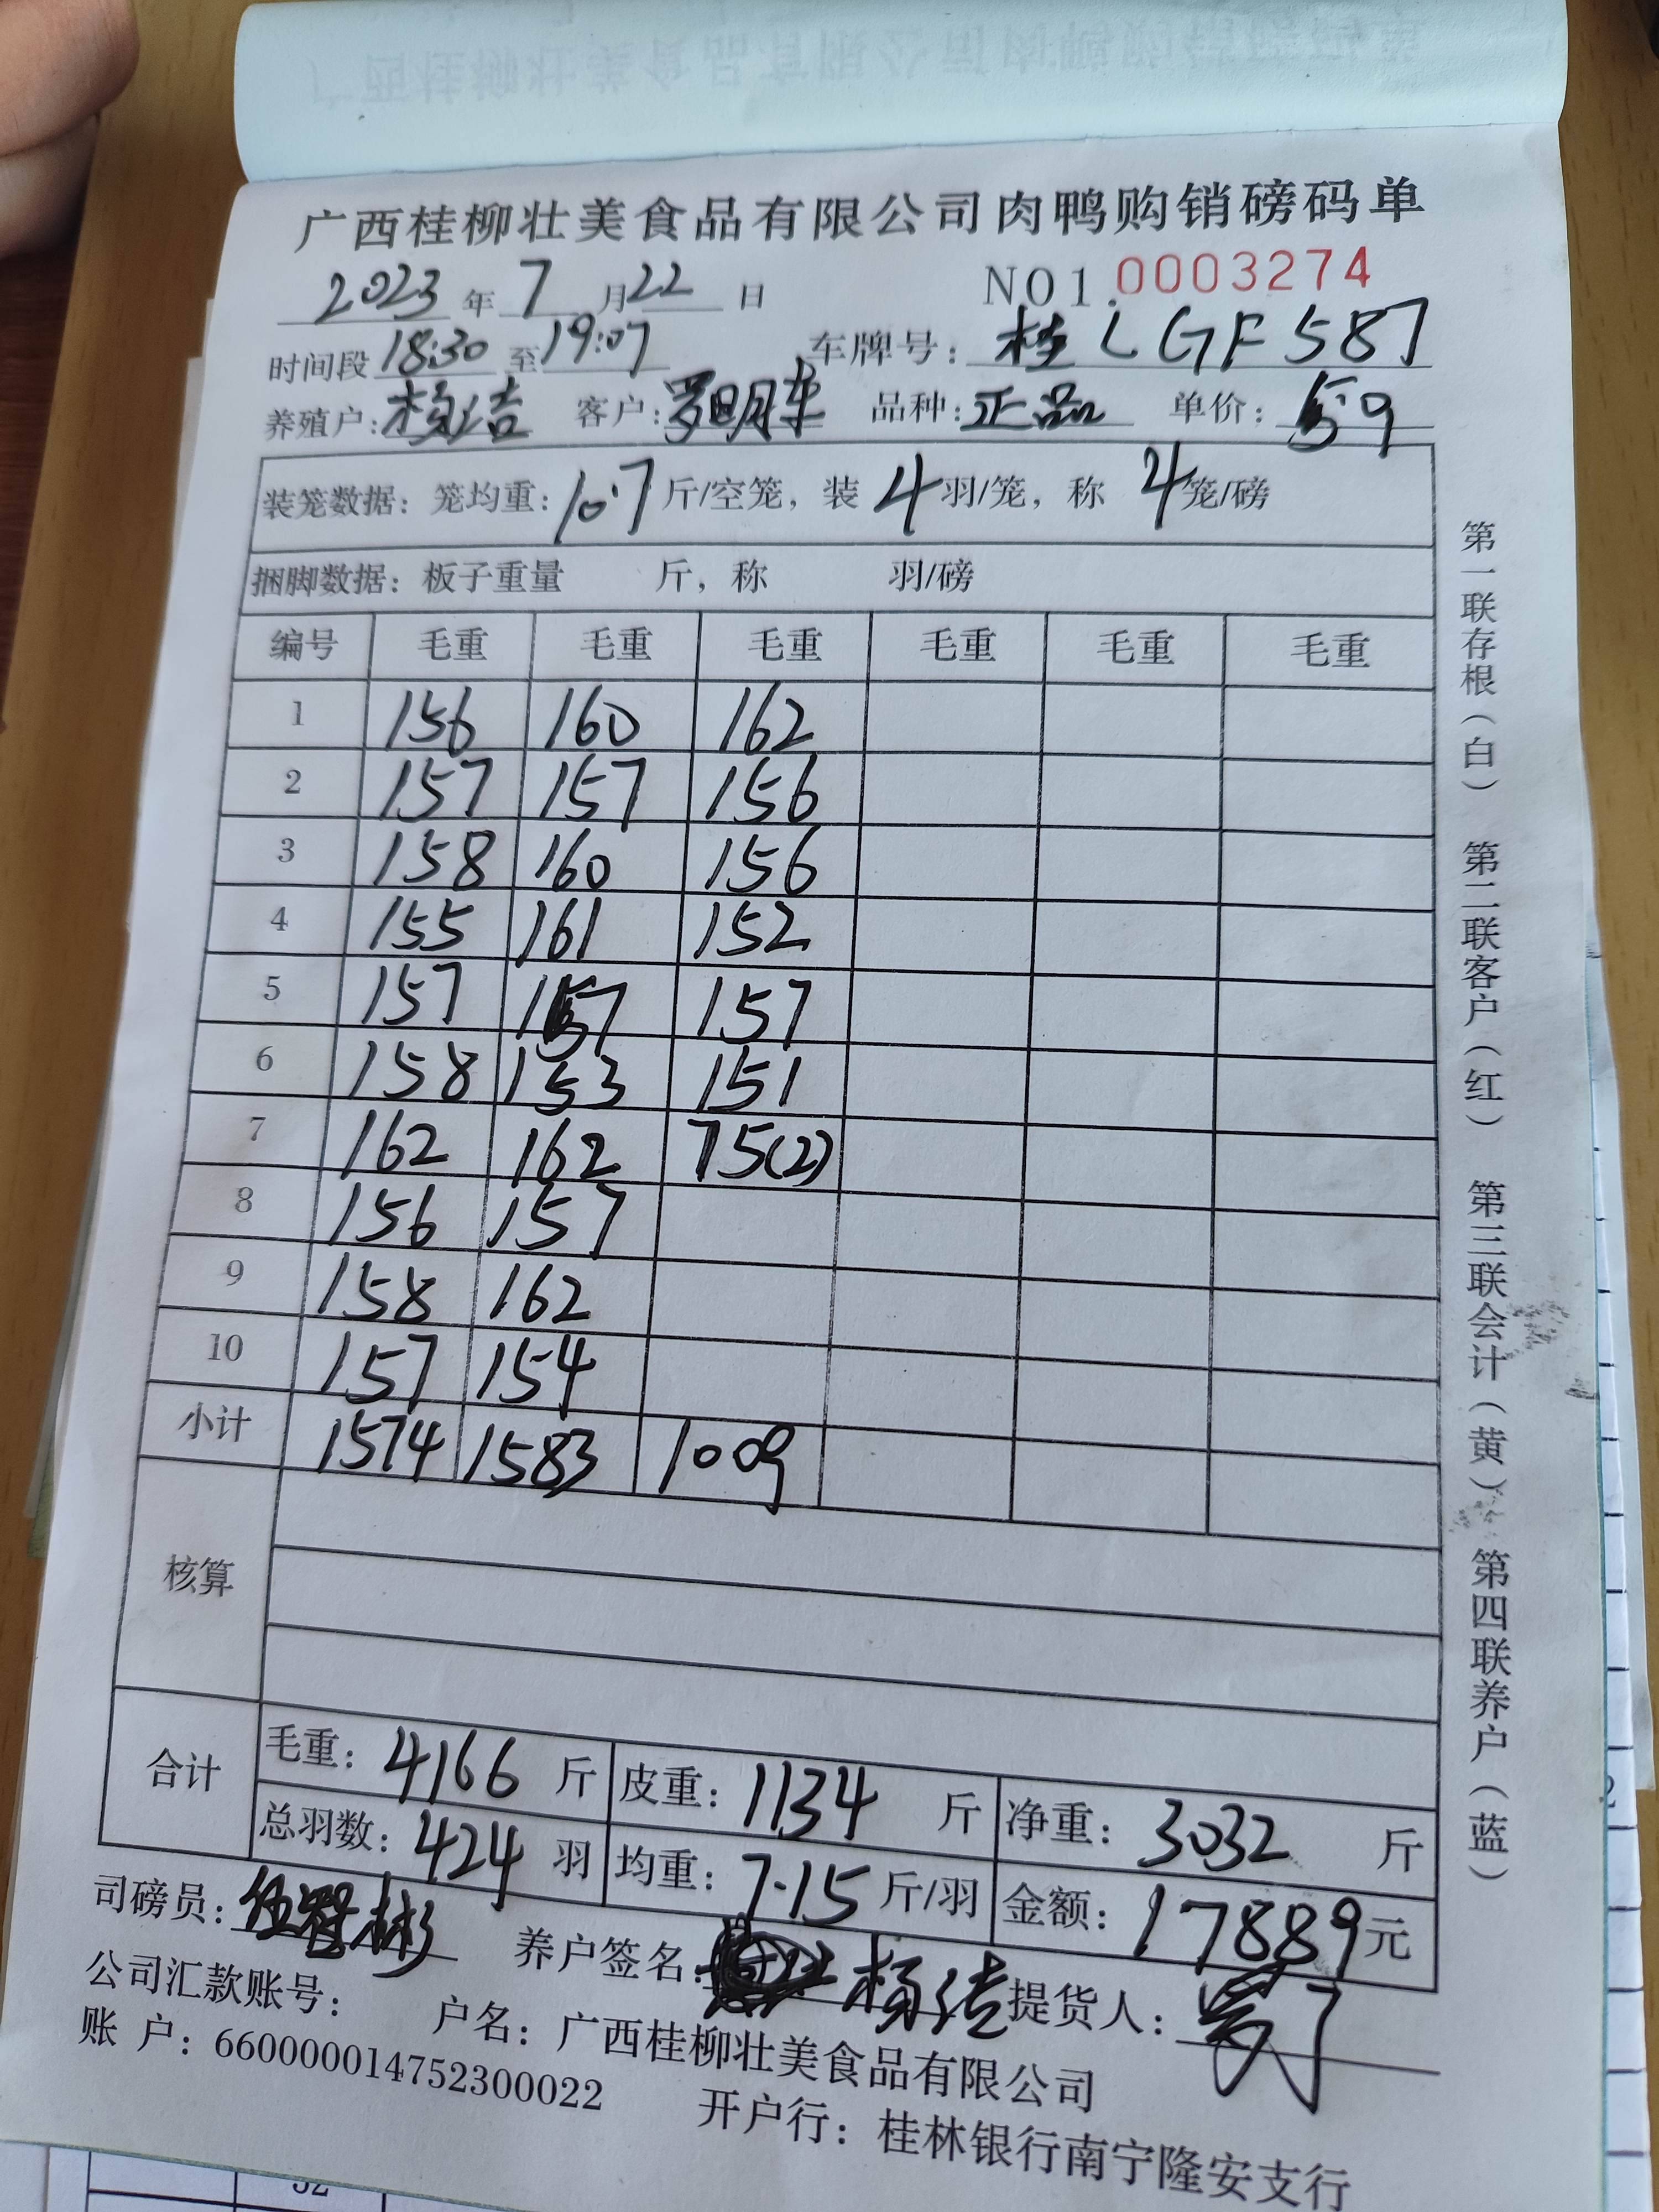 广西桂柳壮美食品有限公司肉鸭购销磅码单
2023年7月22日 NO1.0003274
时间段18:30至19:07 车牌号：桂LGF587
养殖户：杨洁 客户：罗明东 品种：正品 单价：5.9
装笼数据：笼均重：10.7斤/空笼，装4羽/笼，称4笼/磅
捆脚数据：板子重量 斤，称 羽/磅
编号 毛重 毛重 毛重 毛重 毛重 毛重
1 156 160 162
2 157 157 156
3 158 160 156
4 155 161 152
5 157 157 157
6 158 153 151
7 162 162 75(2)
8 156 157
9 158 162
10 157 154
小计 1574 1583 1009
核算
合计
毛重：4166斤 皮重：1134斤 净重：3032斤
总羽数：424羽 均重：7.15斤/羽 金额：17889元
司磅员： 养户签名：杨洁 提货人：
公司汇款账号： 户名：广西桂柳壮美食品有限公司
账 户：660000014752300022 开户行：桂林银行南宁隆安支行
第一联存根（白） 第二联客户（红） 第三联会计（黄） 第四联养户（蓝）